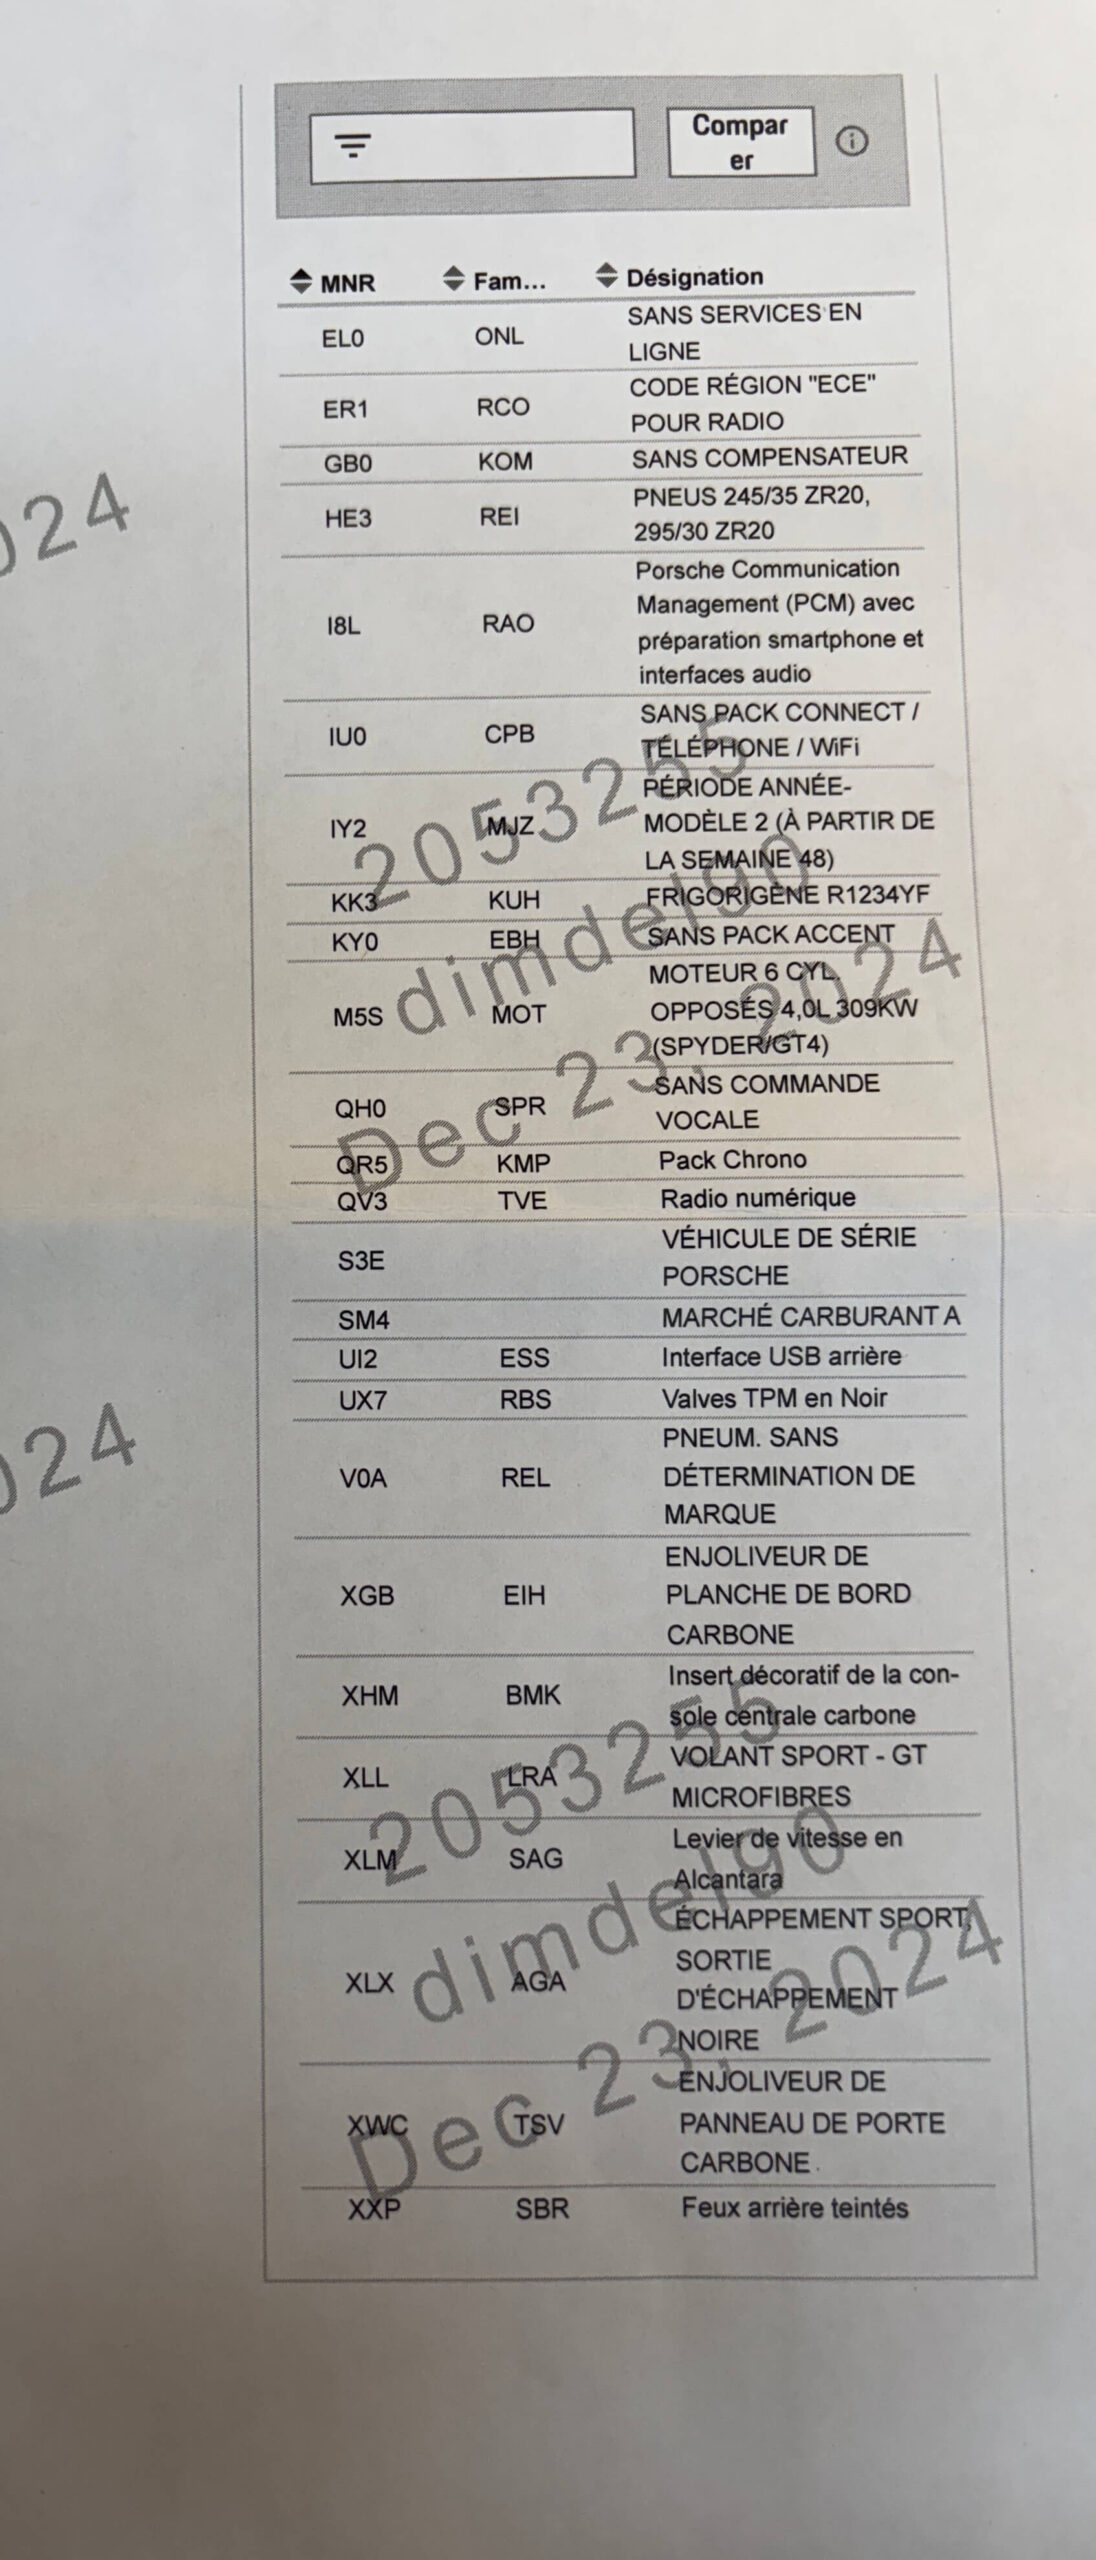 Compar
er
MNR Fam... Désignation
EL0 ONL SANS SERVICES EN
LIGNE
ER1 RCO CODE RÉGION "ECE"
POUR RADIO
GB0 KOM SANS COMPENSATEUR
HE3 REI PNEUS 245/35 ZR20,
295/30 ZR20
I8L RAO Porsche Communication
Management (PCM) avec
préparation smartphone et
interfaces audio
IU0 CPB SANS PACK CONNECT /
TÉLÉPHONE / WiFi
IY2 MJZ PÉRIODE ANNÉE-
MODÈLE 2 (À PARTIR DE
LA SEMAINE 48)
KK3 KUH FRIGORIGÈNE R1234YF
KY0 EBH SANS PACK ACCENT
M5S MOT MOTEUR 6 CYL.
OPPOSÉS 4,0L 309KW
(SPYDER/GT4)
QH0 SPR SANS COMMANDE
VOCALE
QR5 KMP Pack Chrono
QV3 TVE Radio numérique
S3E VÉHICULE DE SÉRIE
PORSCHE
SM4 MARCHÉ CARBURANT A
UI2 ESS Interface USB arrière
UX7 RBS Valves TPM en Noir
V0A REL PNEUM. SANS
DÉTERMINATION DE
MARQUE
XGB EIH ENJOLIVEUR DE
PLANCHE DE BORD
CARBONE
XHM BMK Insert décoratif de la con-
sole centrale carbone
XLL LRA VOLANT SPORT - GT
MICROFIBRES
XLM SAG Levier de vitesse en
Alcantara
XLX AGA ÉCHAPPEMENT SPORT,
SORTIE
D'ÉCHAPPEMENT
NOIRE
XWC TSV ENJOLIVEUR DE
PANNEAU DE PORTE
CARBONE
XXP SBR Feux arrière teintés
024
2053255
dimdel90
Dec 23, 2024
024
2053255
dimdel90
Dec 23, 2024